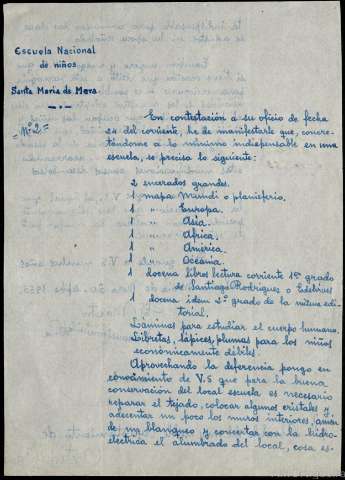 Escuela Nacional
de niños
Santa María de Mera.
= Nº 2 =
En contestación a su oficio de fecha
24 del corriente, he de manifestarle que, concre-
tándome a lo mínimo indispensable en una
escuela, se precisa lo siguiente:
2 encerados grandes.
1 mapa Mundi o planisferio.
1 " Europa.
1 " Asia.
1 " África.
1 " América
1 " Oceanía.
1 docena libros lectura corriente 1er grado
de Santiago Rodríguez o Edelvives
1 docena idem 2º grado de la misma edi-
torial.
Láminas para estudiar el cuerpo humano.
Libretas, lápices, plumas para los niños
económicamente débiles.
Aprovechando la deferencia pongo en
conocimiento de V.S que para la buena
conservación del local escuela es necesario
reparar el tejado, colocar algunos cristales y
adecentar un poco los muros interiores, amén
de un blanqueo y concertar con la hidro-
eléctrica el alumbrado del local, cosa es-